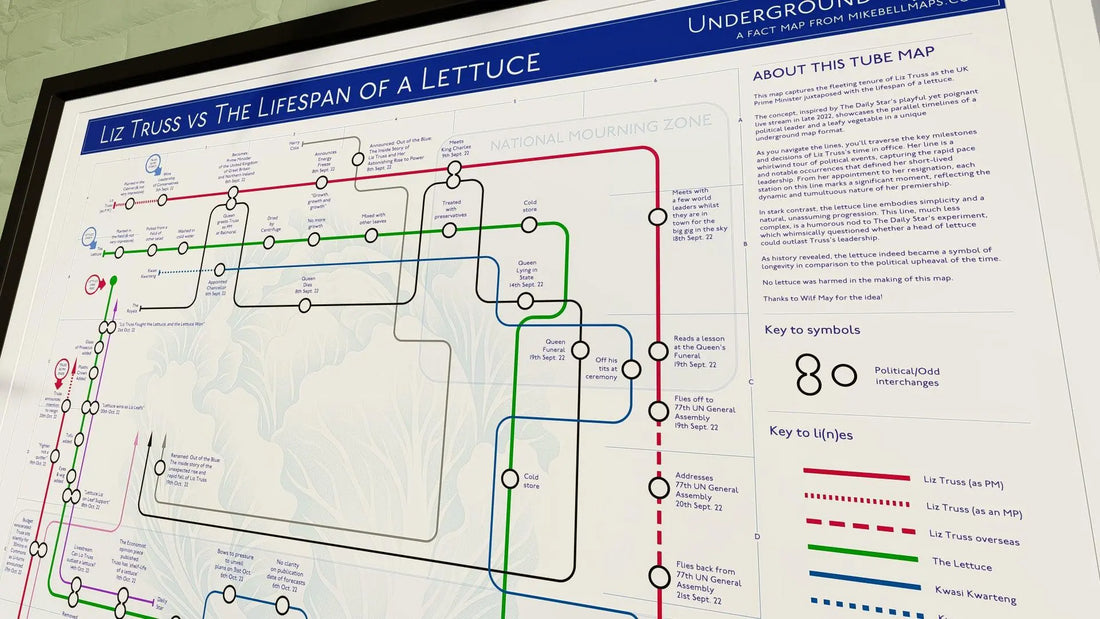 UNDERGROUND
A FACT MAP FROM MIKEBELLMAPS.CO
LIZ TRUSS VS THE LIFESPAN OF A LETTUCE
ABOUT THIS TUBE MAP
This map captures the fleeting tenure of Liz Truss as the UK
Prime Minister juxtaposed with the lifespan of a lettuce.
The concept, inspired by The Daily Star's playful yet poignant
live stream in late 2022, showcases the parallel timelines of a
political leader and a leafy vegetable in a unique
underground map format.
As you navigate the lines, you'll traverse the key milestones
and decisions of Liz Truss's time in office. Her line is a
whirlwind tour of political events, capturing the rapid pace
and notable occurrences that defined her short-lived
leadership. From her appointment to her resignation, each
station on this line marks a significant moment, reflecting the
dynamic and tumultuous nature of her premiership.
In stark contrast, the lettuce line embodies simplicity and a
natural, unassuming progression. This line, much less
complex, is a humorous nod to The Daily Star's experiment,
which whimsically questioned whether a head of lettuce
could outlast Truss's leadership.
As history revealed, the lettuce indeed became a symbol of
longevity in comparison to the political upheaval of the time.
No lettuce was harmed in the making of this map.
Thanks to Wilf May for the idea!
Key to symbols
Political/Odd
interchanges
Key to li(n)es
Liz Truss (as PM)
Liz Truss (as an MP)
Liz Truss overseas
The Lettuce
Kwasi Kwarteng
NATIONAL MOURNING ZONE
Harry
Cole
Announced: Out of the Blue:
The Inside Story of
Liz Truss and Her
Astonishing Rise to Power
Meets
King Charles
9th Sept. 22
Announces
Energy
Freeze
8th Sept. 22
"Growth,
growth and
growth"
Becomes
Prime Minister
of the United Kingdom
of Great Britain
and Northern Ireland
6th Sept. 22
Queen
greets Truss
as PM
at Balmoral
Wins
Leadership
of Conservatives
Planted in
the field
Pulled from a
field of
other salad
Washed in
cold water
Dried
by
Centrifuge
No more
growth
Mixed with
other leaves
Treated
with
preservatives
Cold
store
The
Lettuce
Kwasi
Kwarteng
Appointed
Chancellor
6th Sept. 22
The
Royals
Queen
Dies
8th Sept. 22
Queen
Lying in
State
14th Sept. 22
Queen
Funeral
19th Sept. 22
Off his
tits at
ceremony
Cold
store
Meets with
a few world
leaders whilst
they are in
town for the
big gig in the sky
18th Sept. 22
Reads a lesson
at the Queen's
Funeral
19th Sept. 22
Flies off to
77th UN General
Assembly
19th Sept. 22
Addresses
77th UN General
Assembly
20th Sept. 22
Flies back from
77th UN General
Assembly
21st Sept. 22
"Liz Truss Fought the Lettuce, and the Lettuce Won"
"Lettuce wins as Liz Leafs"
Renamed: Out of the Blue:
The inside story of the
unexpected rise and
rapid fall of Liz Truss
"Lettuce Liz
on Leaf Support"
Livestream:
Can Liz Truss
outlast a lettuce?
14th Oct. 22
The Economist
opinion piece
published
Daily
Star
Bows to pressure
to unveil
plans on 31st Oct.
No clarity
on publication
date of forecasts
6th Oct. 22
Removed
A
B
C
D